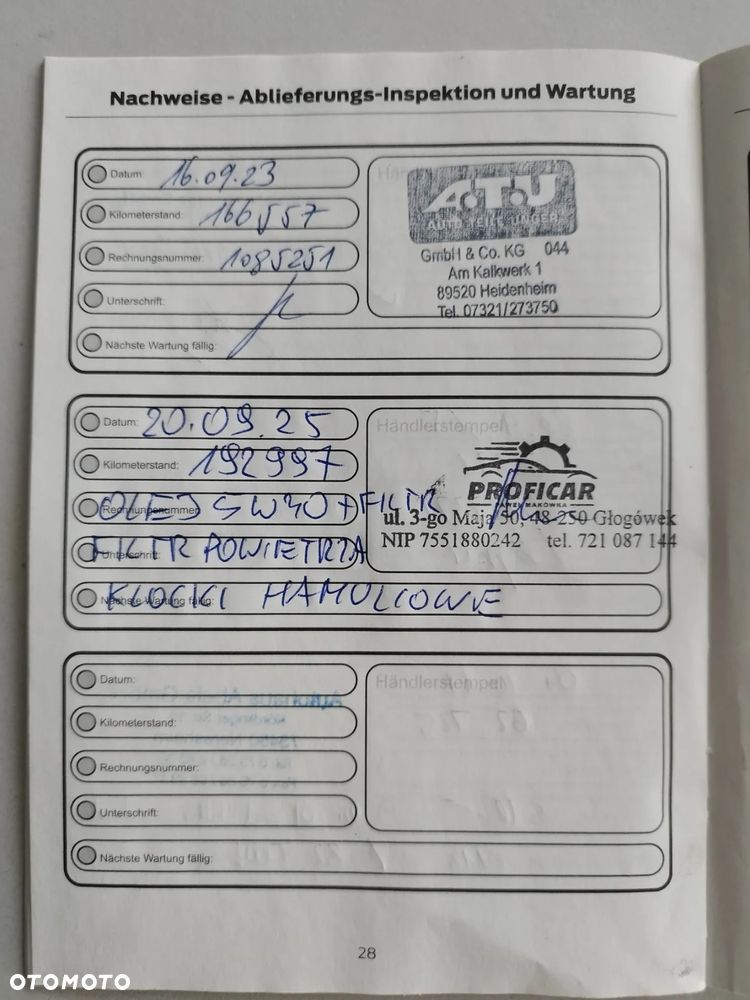 Nachweise - Ablieferungs-Inspektion und Wartung
Datum: 16.09.23
Kilometerstand: 166557
Rechnungsnummer: 1085251
Unterschrift:
Nächste Wartung fällig:
A.T.U
AUTO-TEILE-UNGER
GmbH & Co. KG 044
Am Kalkwerk 1
89520 Heidenheim
Tel. 07321/273750
Datum: 20.09.25
Kilometerstand: 192997
Rechnungsnummer: OLEJ 5W30 + FILTR
Unterschrift: FILTR POWIETRZA
Nächste Wartung fällig: KLOCKI HAMULCOWE
Händlerstempel
PROFICAR
PAWEŁ MAKÓWKA
ul. 3-go Maja 50, 48-250 Głogówek
NIP 7551880242 tel. 721 087 144
Datum:
Kilometerstand:
Rechnungsnummer:
Unterschrift:
Nächste Wartung fällig:
Händlerstempel
28
OTOMOTO